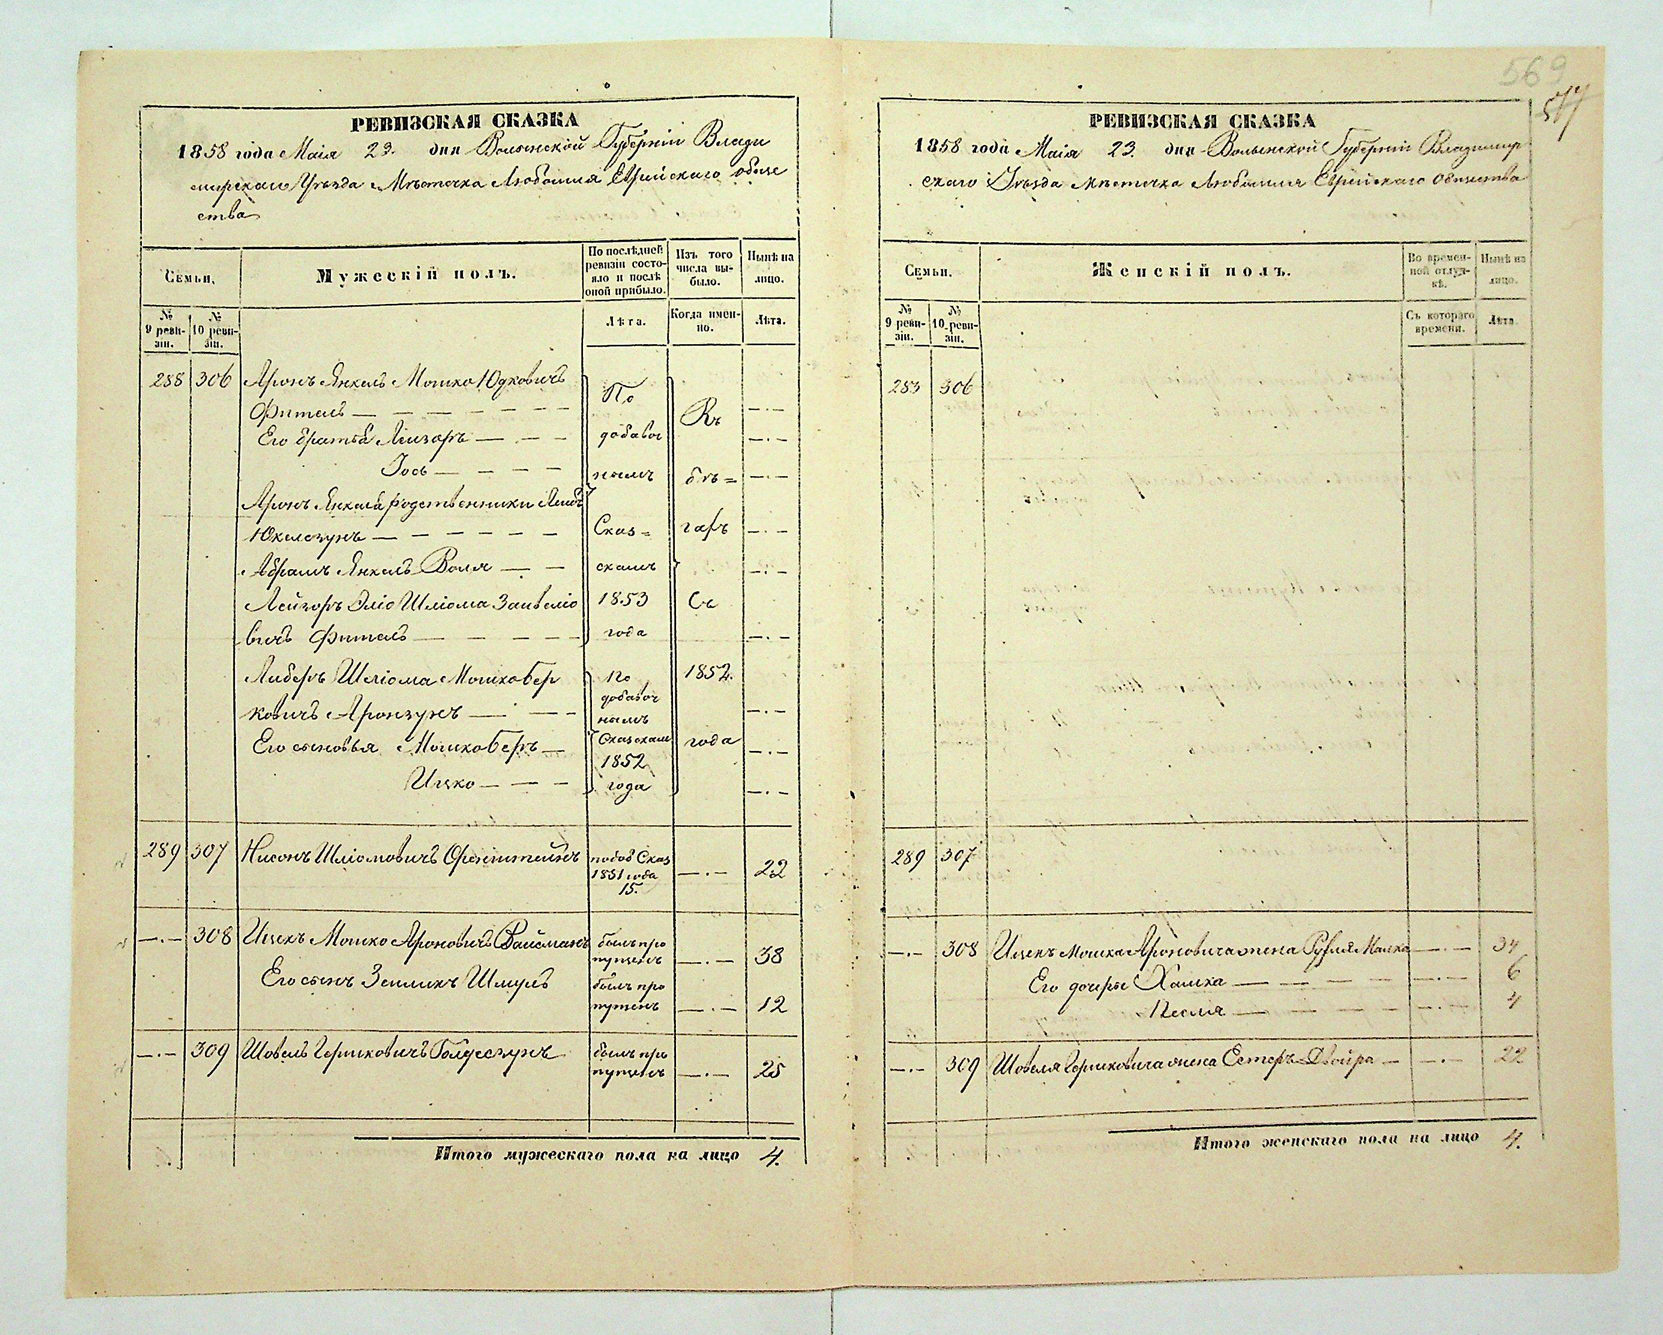 569
577
РЕВИЗСКАЯ СКАЗКА
1858 года Маія 23. дня Волынской Губерніи Влади
мирскаго Уѣзда Мѣстечка Любомля Еврейскаго обще
ства
Семьи.
Мужескій полъ.
По послѣдней ревизіи состояло и послѣ оной прибыло.
Изъ того числа выбыло.
Нынѣ на лицо.
№ 9 ревизіи.
№ 10 ревизіи.
Лѣта.
Когда именно.
Лѣта.
288 306 Аронъ Янкель Мошко Юдковичъ
Фитель — — — — — —
Его братья Лейзоръ — — —
Іось — — — —
Аронъ Янкеля родственники
— — — — — —
Абрамъ Янкель Воля — —
Лейзоръ Эліо Шліома
вичъ Фитель — — — — —
Либеръ Шліома Мошко Бер
ковичъ Аронзунъ — — —
Его сыновья Мошко Беръ —
Ицко — — —
По
добавоч
нымъ
Сказ=
скамъ
1853
года
По
добавоч
нымъ
Сказскамъ
1852
года
Въ
бѣ=
гахъ
Съ
1852.
года
289 307 Нисонъ Шліомовичъ Оренштейнъ по доб Сказ 1851 года 15. —.— 22
—.— 308 Ицекъ Мошко Ароновичъ Вайсманъ былъ пропущенъ —.— 38
Его сынъ Зелликъ Шмуль былъ пропущенъ —.— 12
—.— 309 Шовель Гершковичъ Гольдезунъ былъ пропущенъ —.— 25
Итого мужескаго пола на лицо 4.
РЕВИЗСКАЯ СКАЗКА
1858 года Маія 23. дня Волынской Губерніи Владимир
скаго Уѣзда Мѣстечка Любомля Еврейскаго Общества
Семьи.
Женскій полъ.
Во временной отлучкѣ.
Нынѣ на лицо.
№ 9 ревизіи.
№ 10 ревизіи.
Съ котораго времени.
Лѣта.
283 306
289 307
—.— 308 Ицекъ Мошка Ароновича жена Рухля Малка —.— 34
Его дочери Хайка — — — — —.— 6
Песля — — — — —.— 4
—.— 309 Шовеля Гершковича жена Естеръ Двойра — —.— 22
Итого женскаго пола на лицо 4.